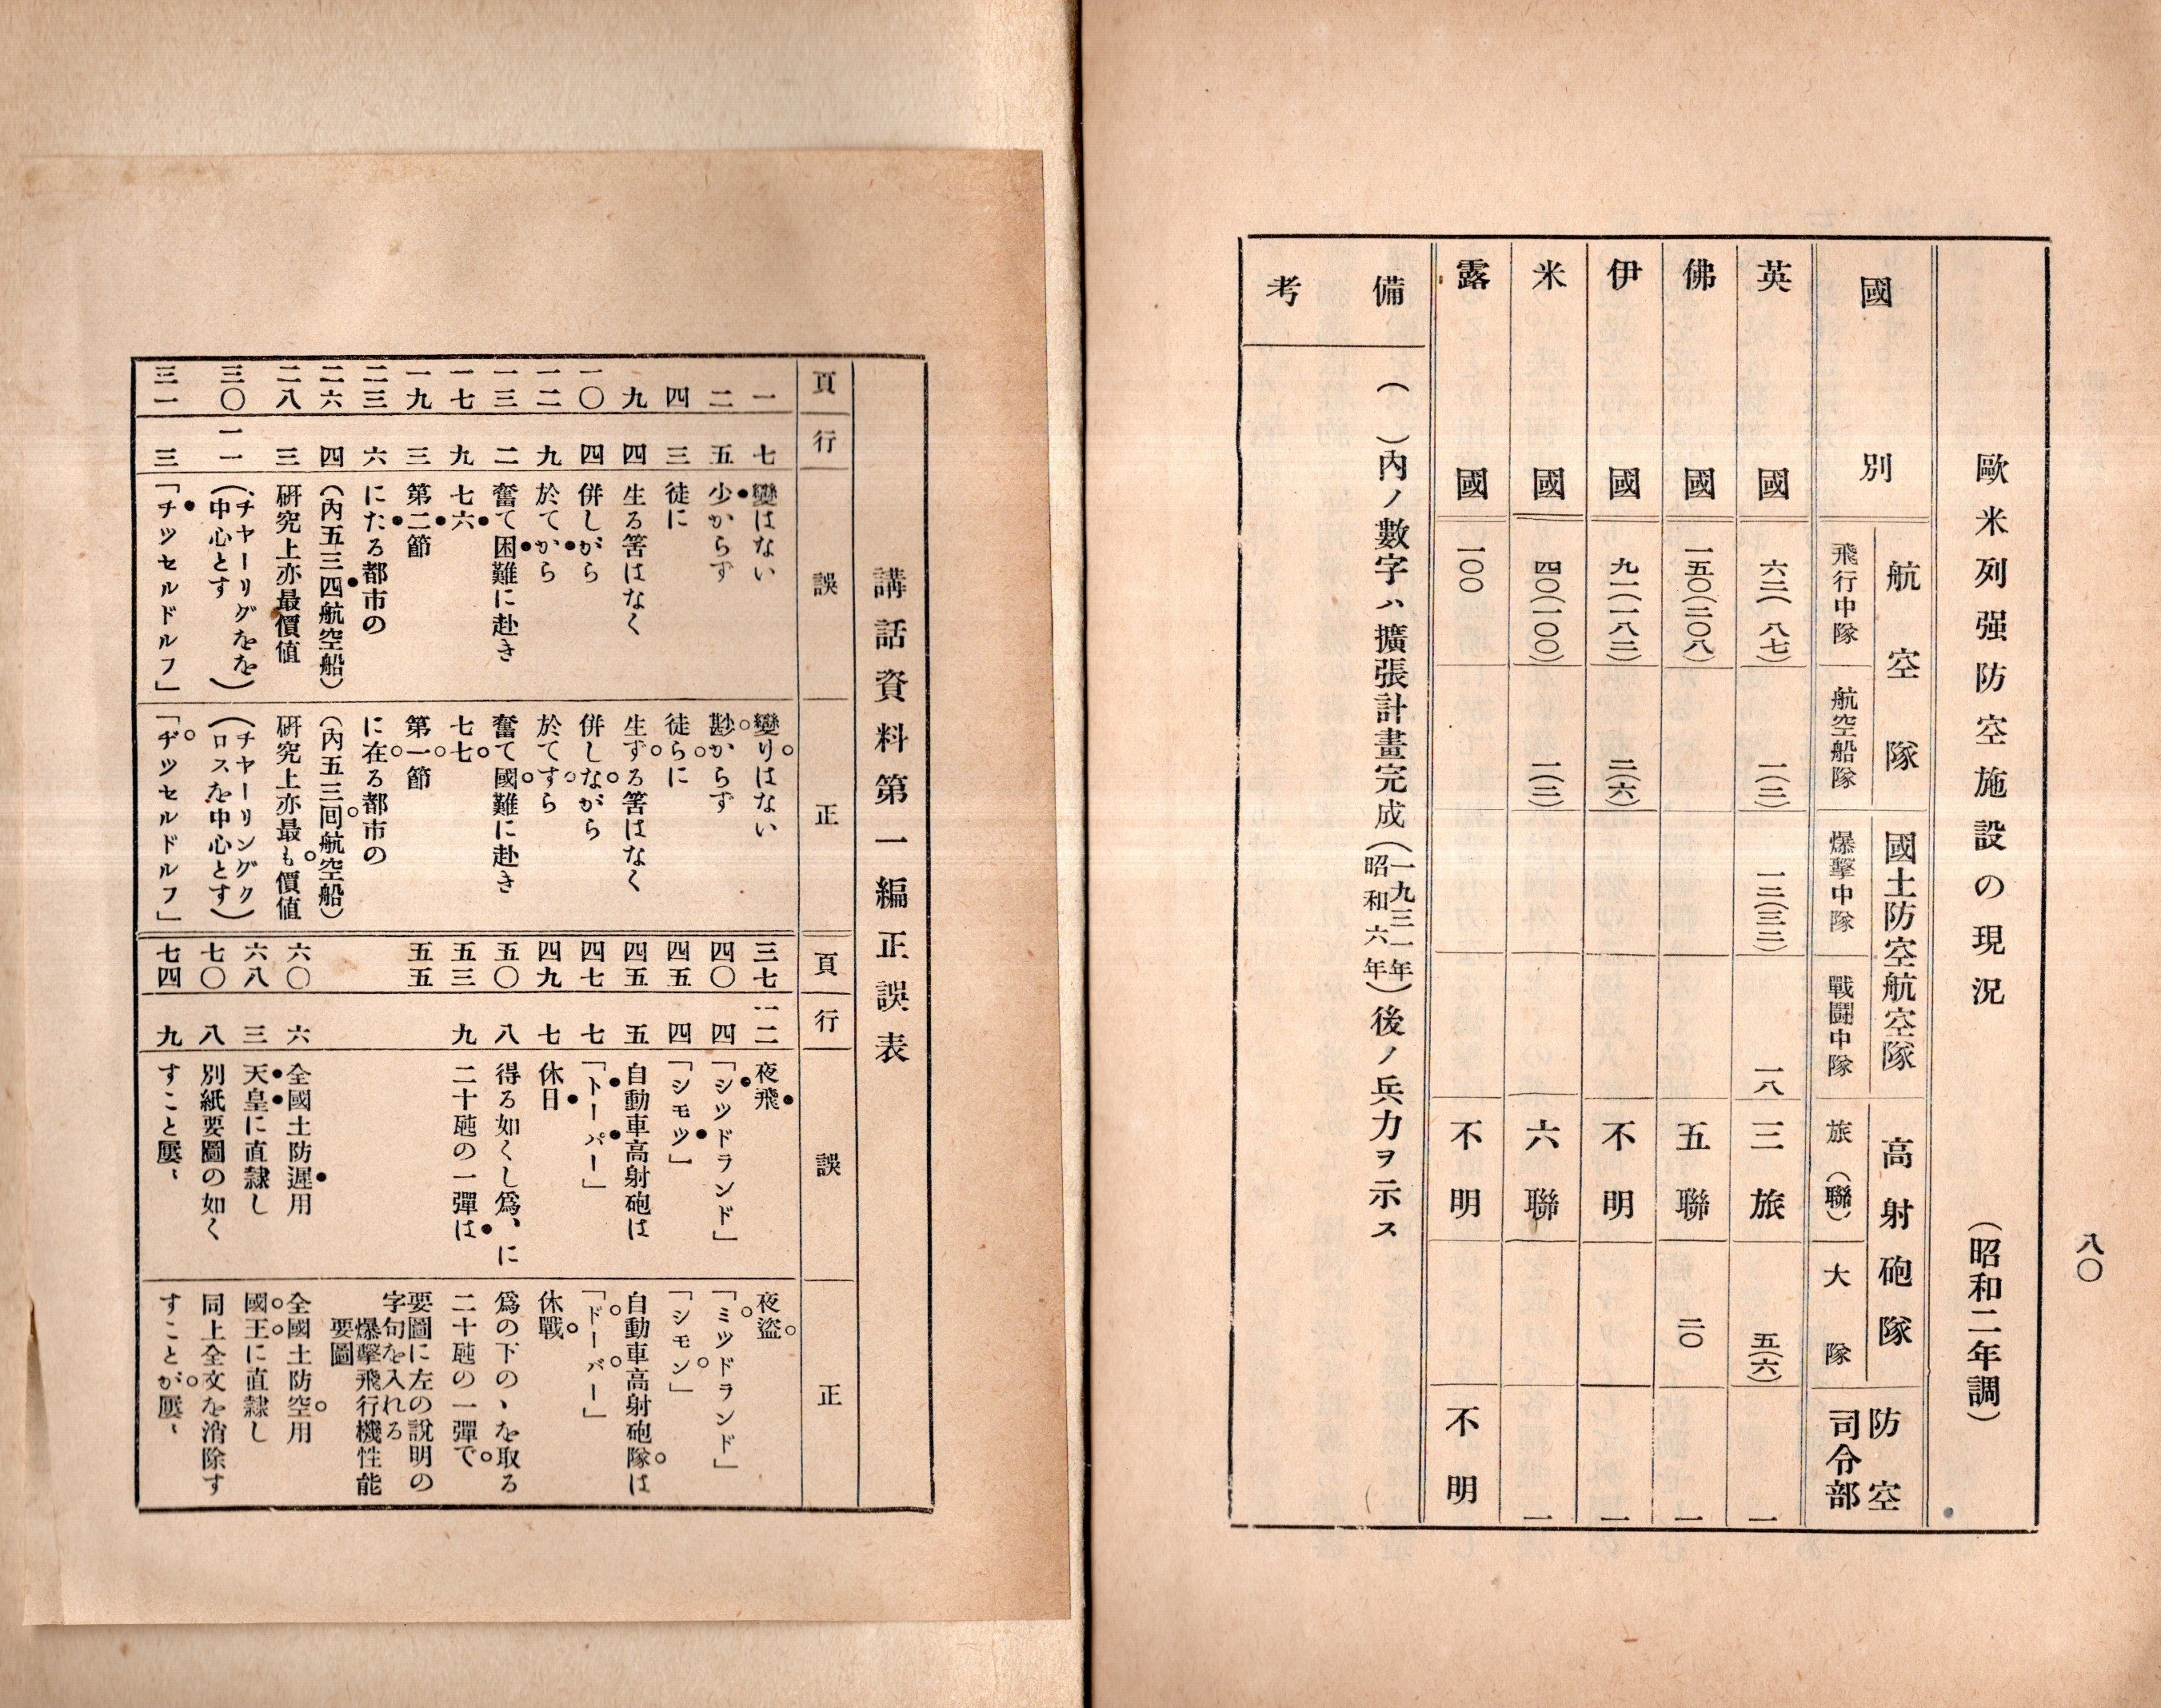 八〇
歐米列强防空施設の現況
（昭和二年調）
國別
航空隊
飛行中隊
航空船隊
國土防空航空隊
爆擊中隊
戰鬪中隊
高射砲隊
旅（聯）
大隊
防空
司令部
英國
六二（八七）
一（三）
一二（三三）
一八
三旅
五（六）
一
佛國
一五〇（二〇八）
五聯
二〇
一
伊國
九一（一八三）
二（六）
不明
一
米國
四〇（一〇〇）
一（三）
六聯
一
露國
一〇〇
不明
不明
備考
（　）內ノ數字ハ擴張計畫完成（一九三一年昭和六年）後ノ兵力ヲ示ス
講話資料第一編正誤表
頁 行 誤 正
一 七 變はない 變りはない
二 五 少からず 尠からず
四 三 徒に 徒らに
九 四 生る筈はなく 生ずる筈はなく
一〇 四 併しがら 併しながら
一二 九 於てから 於てすら
一三 二 奮て困難に赴き 奮て國難に赴き
一七 九 七六 七七
一九 三 第二節 第一節
二三 六 にたる都市の に在る都市の
二六 四 （內五三四航空船） （內五三回航空船）
二八 三 硏究上亦最價値 硏究上亦最も價値
三〇 一一 （チヤーリグをを中心とす） （チヤーリングクロスを中心とす）
三一 三 「チツセルドルフ」 「ヂツセルドルフ」
頁 行 誤 正
三七 一二 夜飛 夜盜
四〇 四 「シツドランド」 「ミツドランド」
四五 四 「シモツ」 「シモン」
四五 五 自動車高射砲は 自動車高射砲隊は
四七 七 「トーパー」 「ドーバー」
四九 七 休日 休戰
五〇 八 得る如くし爲、に 爲の下の、を取る
五三 九 二十瓲の一彈は 二十瓲の一彈で
五五 要圖に左の說明の字句を入れる
爆擊飛行機性能要圖
六〇 六 全國土防遲用 全國土防空用
六八 三 天皇に直隸し 國王に直隸し
七〇 八 別紙要圖の如く 同上全文を消除す
七四 九 すこと屢〻 すことが屢〻